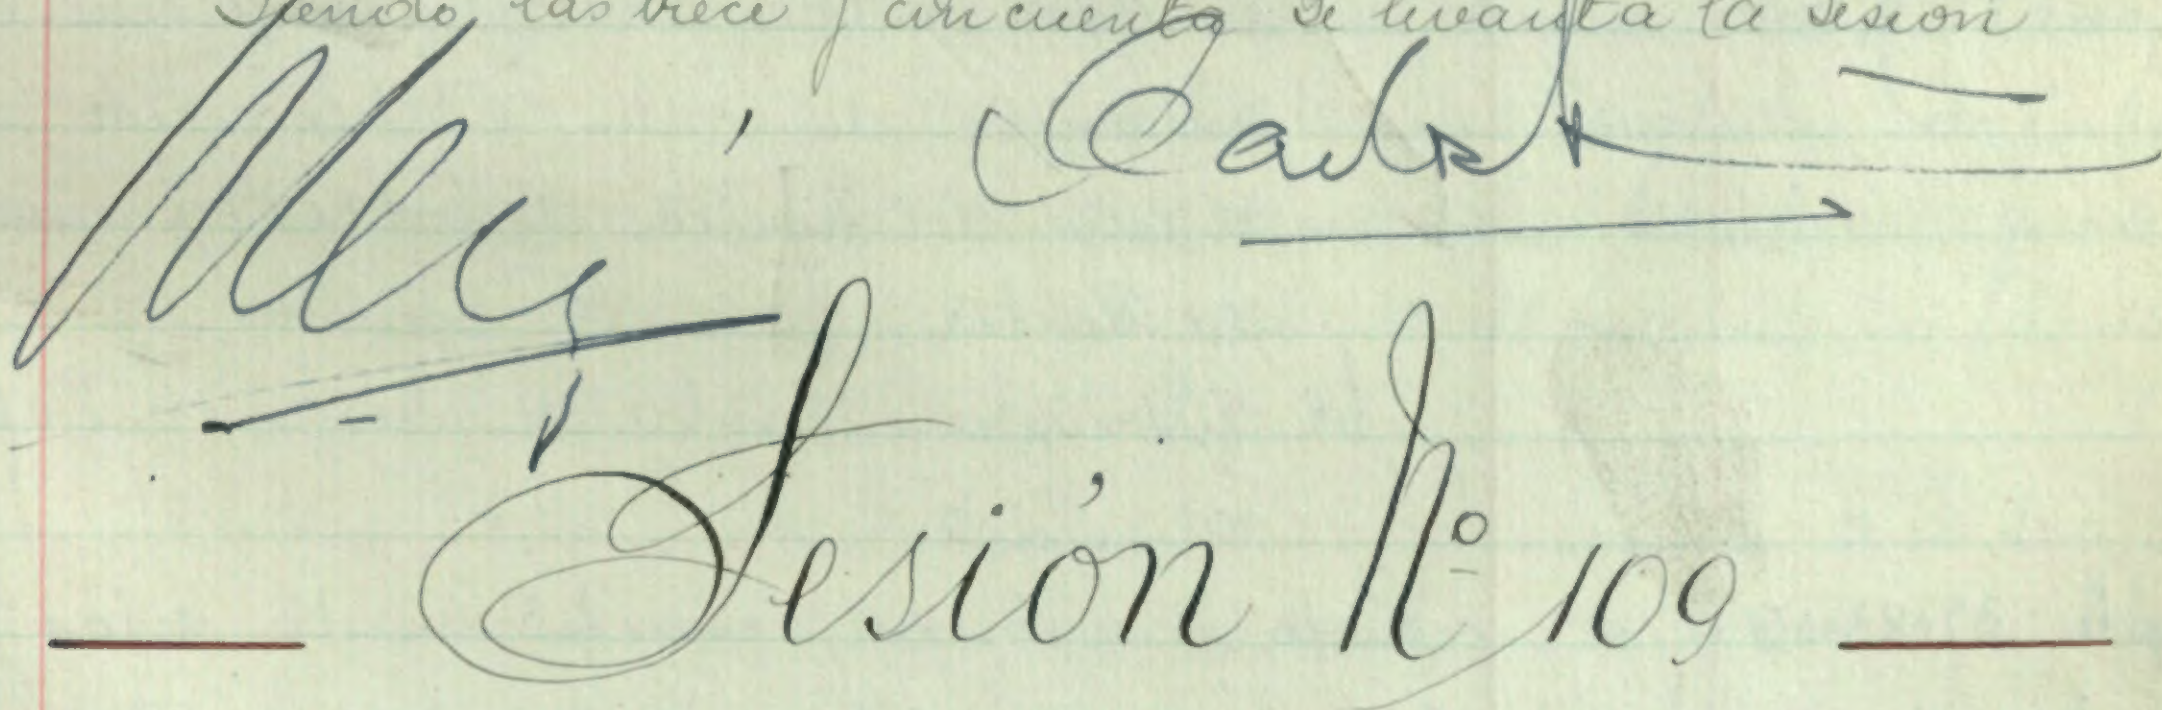 Siendo las trece y cincuenta se levanta la sesión
Sesión Nº 109